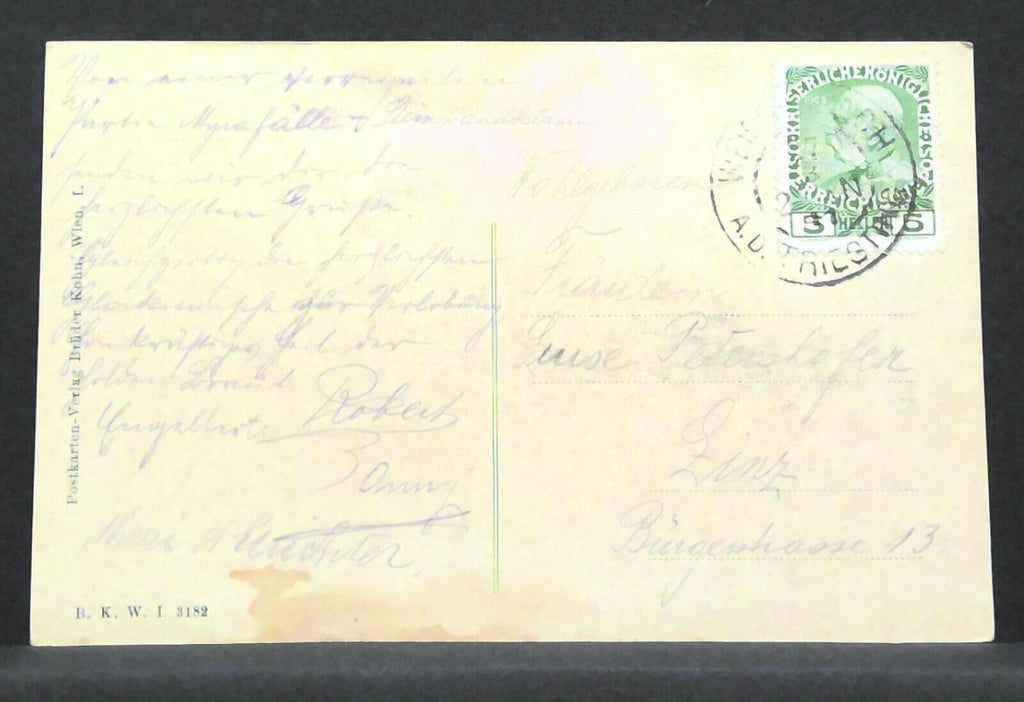 Von einer verregneten
Partie Myrafälle + Steinwandklamm
senden wir dir die
herzlichsten Grüße.
Gleichzeitig die herzlichsten
Glückwünsche zur Verlobung
Ein kräftiges Heil der
holden Braut.
Engelbert
Robert
Fanny
Postkarten-Verlag Brüder Kohn, Wien, I.
B. K. W. I. 3182
KAISERLICHE KÖNIGLICHE ÖSTERREICHISCHE POST
1908
5 HELLER 5
A.D. TRIESTING
Wohlgeboren
Fräulein
Luise Petershofer
Linz
Bürgerstrasse 13